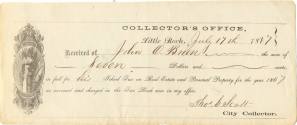 COLLECTOR'S OFFICE,
Little Rock, July 17th 1867
Received of John O'Brien the sum
of Seven Dollars and
in full for his School Tax on Real Estate and Personal Property for the year 1867
as assessed and charged in the Tax Book now in my office.
Thos. C. Scott
City Collector.